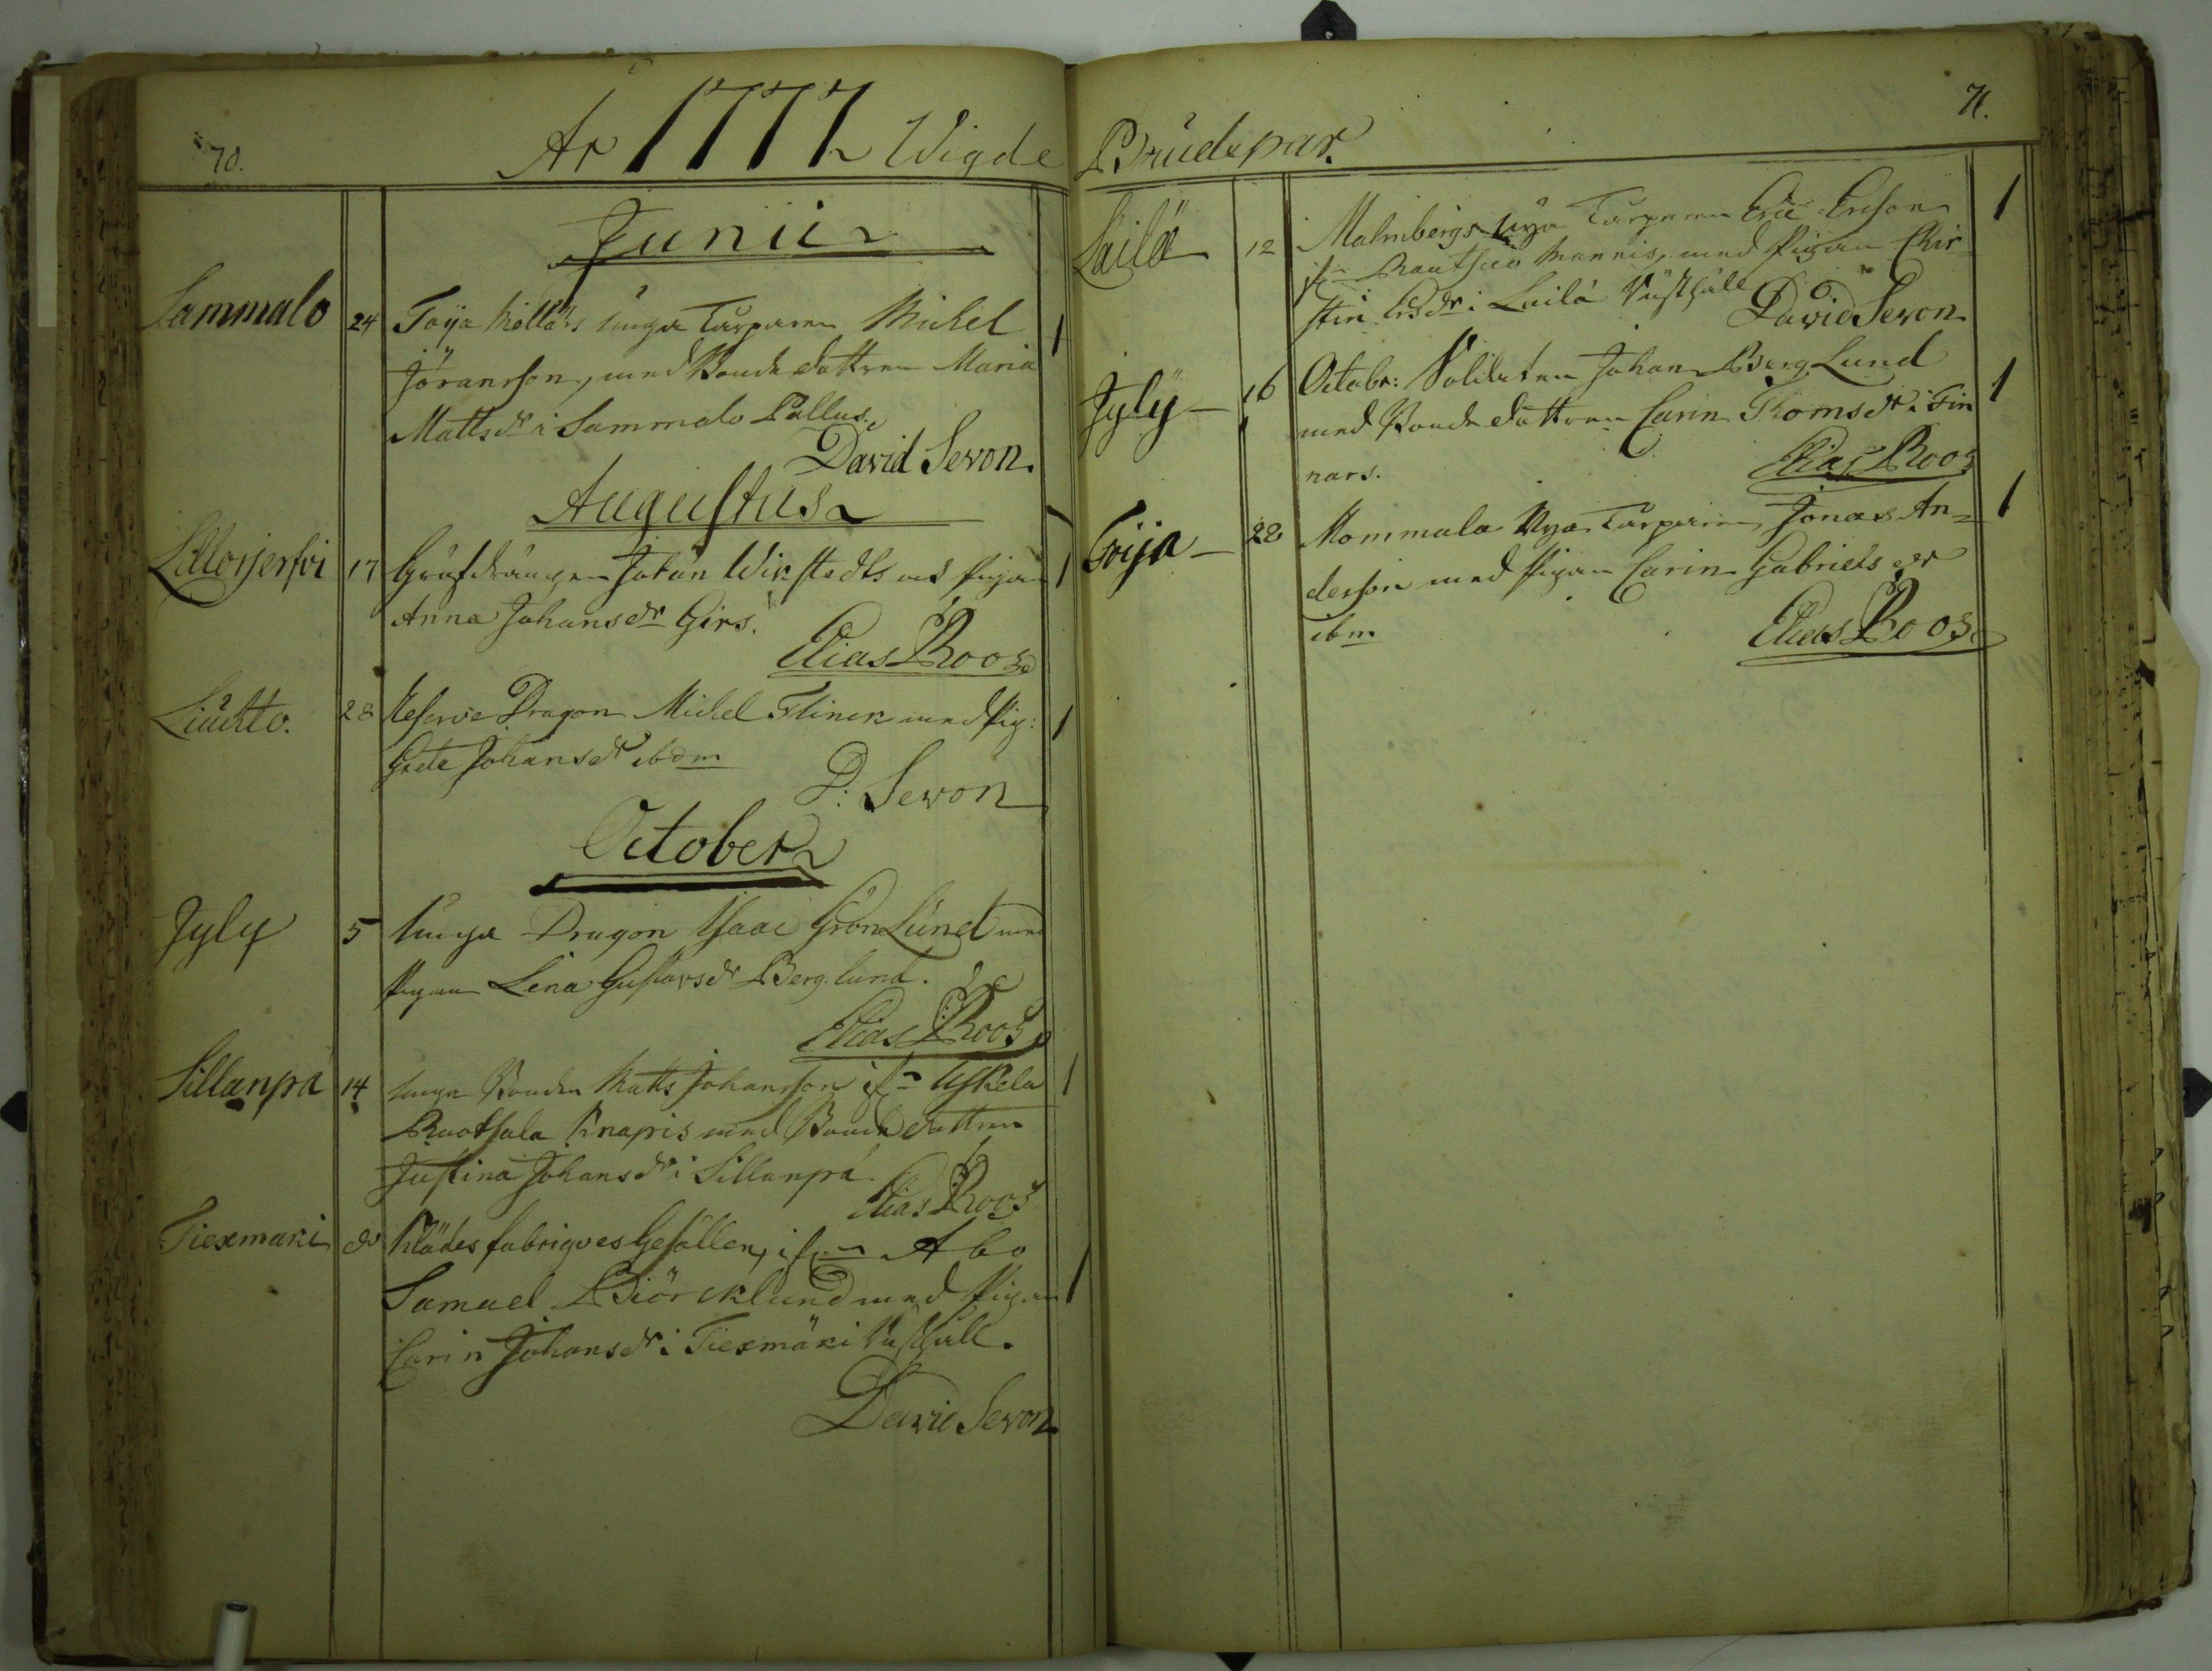 70.
År 1777 Wigde
Junii
Sammalo 24 Toija Mollars unga Torparen Michel
Jöransson, med Bonde dottren Maria
Mattsdr i Sammalo Pallus.
David Sevon.
Augustus
17 Grufdrängen Johan Wikstedts med Pigan
Anna Johansdr Girs.
Elias Roos
Liuhto. 28 Reserve Dragon Michel Flinck med Pig:
Greta Johansdr ibdm
D: Sevon
October
Jyly 5 unga Dragon Isaac Grönlund med
Pigan Lena Gustavsdr Berglund.
Elias Roos
Sillanpä 14 unga Bonden Matts Johansson ifrn Uskela
Ruotsala Knapis med Bonde dottren
Justina Johansdr i Sillanpä.
Elias Roos
Tiexmäki do Klädes fabriques Gesällen, ifrn Åbo
Samuel Biörcklund med Pigan
Carin Johansdr i Tiexmäki Rusthåll.
David Sevon
71.
Brudepar.
Lailä 12 Malmbergs unga Torparen Eric Ersson
ifrn mannis, med Pigan Chir
stin Ersdr i Lailä Rusthåll
David Sevon
Jyly 16 Octobr: Soldaten Johan Berg Lund
med Bonde dottren Carin Thomsdr i Fin
nars.
Elias Roos
Toija 22 Mommala Nya Torparen Jonas An=
dersson med Pigan Carin Gabriels dr
ibm
Elias Roos